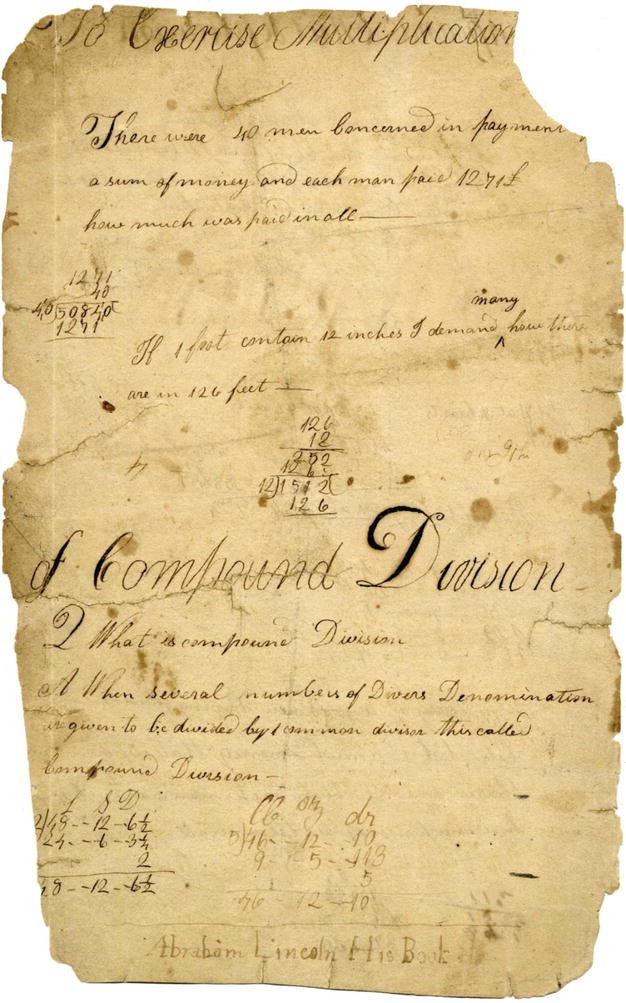 To Exercise Multiplication
There were 40 men concerned in payment
a sum of money and each man paid 1271£
how much was paid in all —
1271
40
40)50840(
1271
many
If 1 foot contain 12 inches I demand ^ how there
are in 126 feet —
126
12
252
126
12)1512(
126
of Compound Division
Q What is compound Division
A When several numbers of Divers Denomination
are given to be divided by 1 common divisor this called
Compound Division —
£ S D
2)48--12-6½
24--6-3¼
2
48--12-6½
lb oz dr
5)46--12--10
9--5--
5
46--12--10
Abraham Lincoln His Book